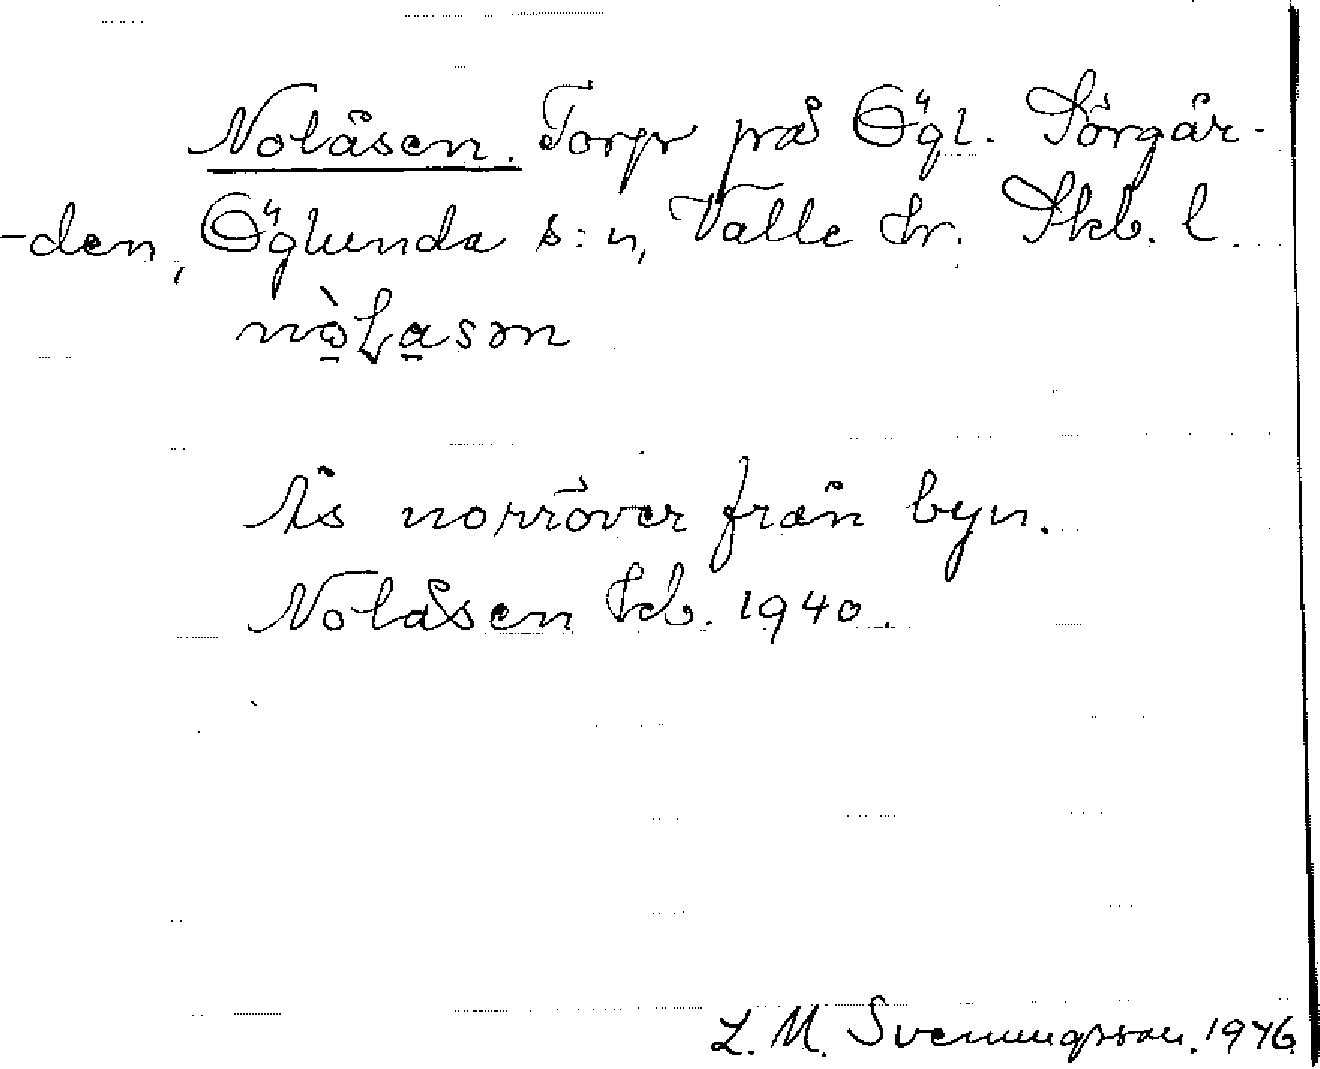 Nolåsen. Torp på Ögl. Sörgår-
-den, Öglunda s:n, Valle hr. Skb. l.
nò̠Ła̠sən
Ås norröver från byn.
Nolåsen Jrb. 1940.
L. M. Svenungsson. 1946